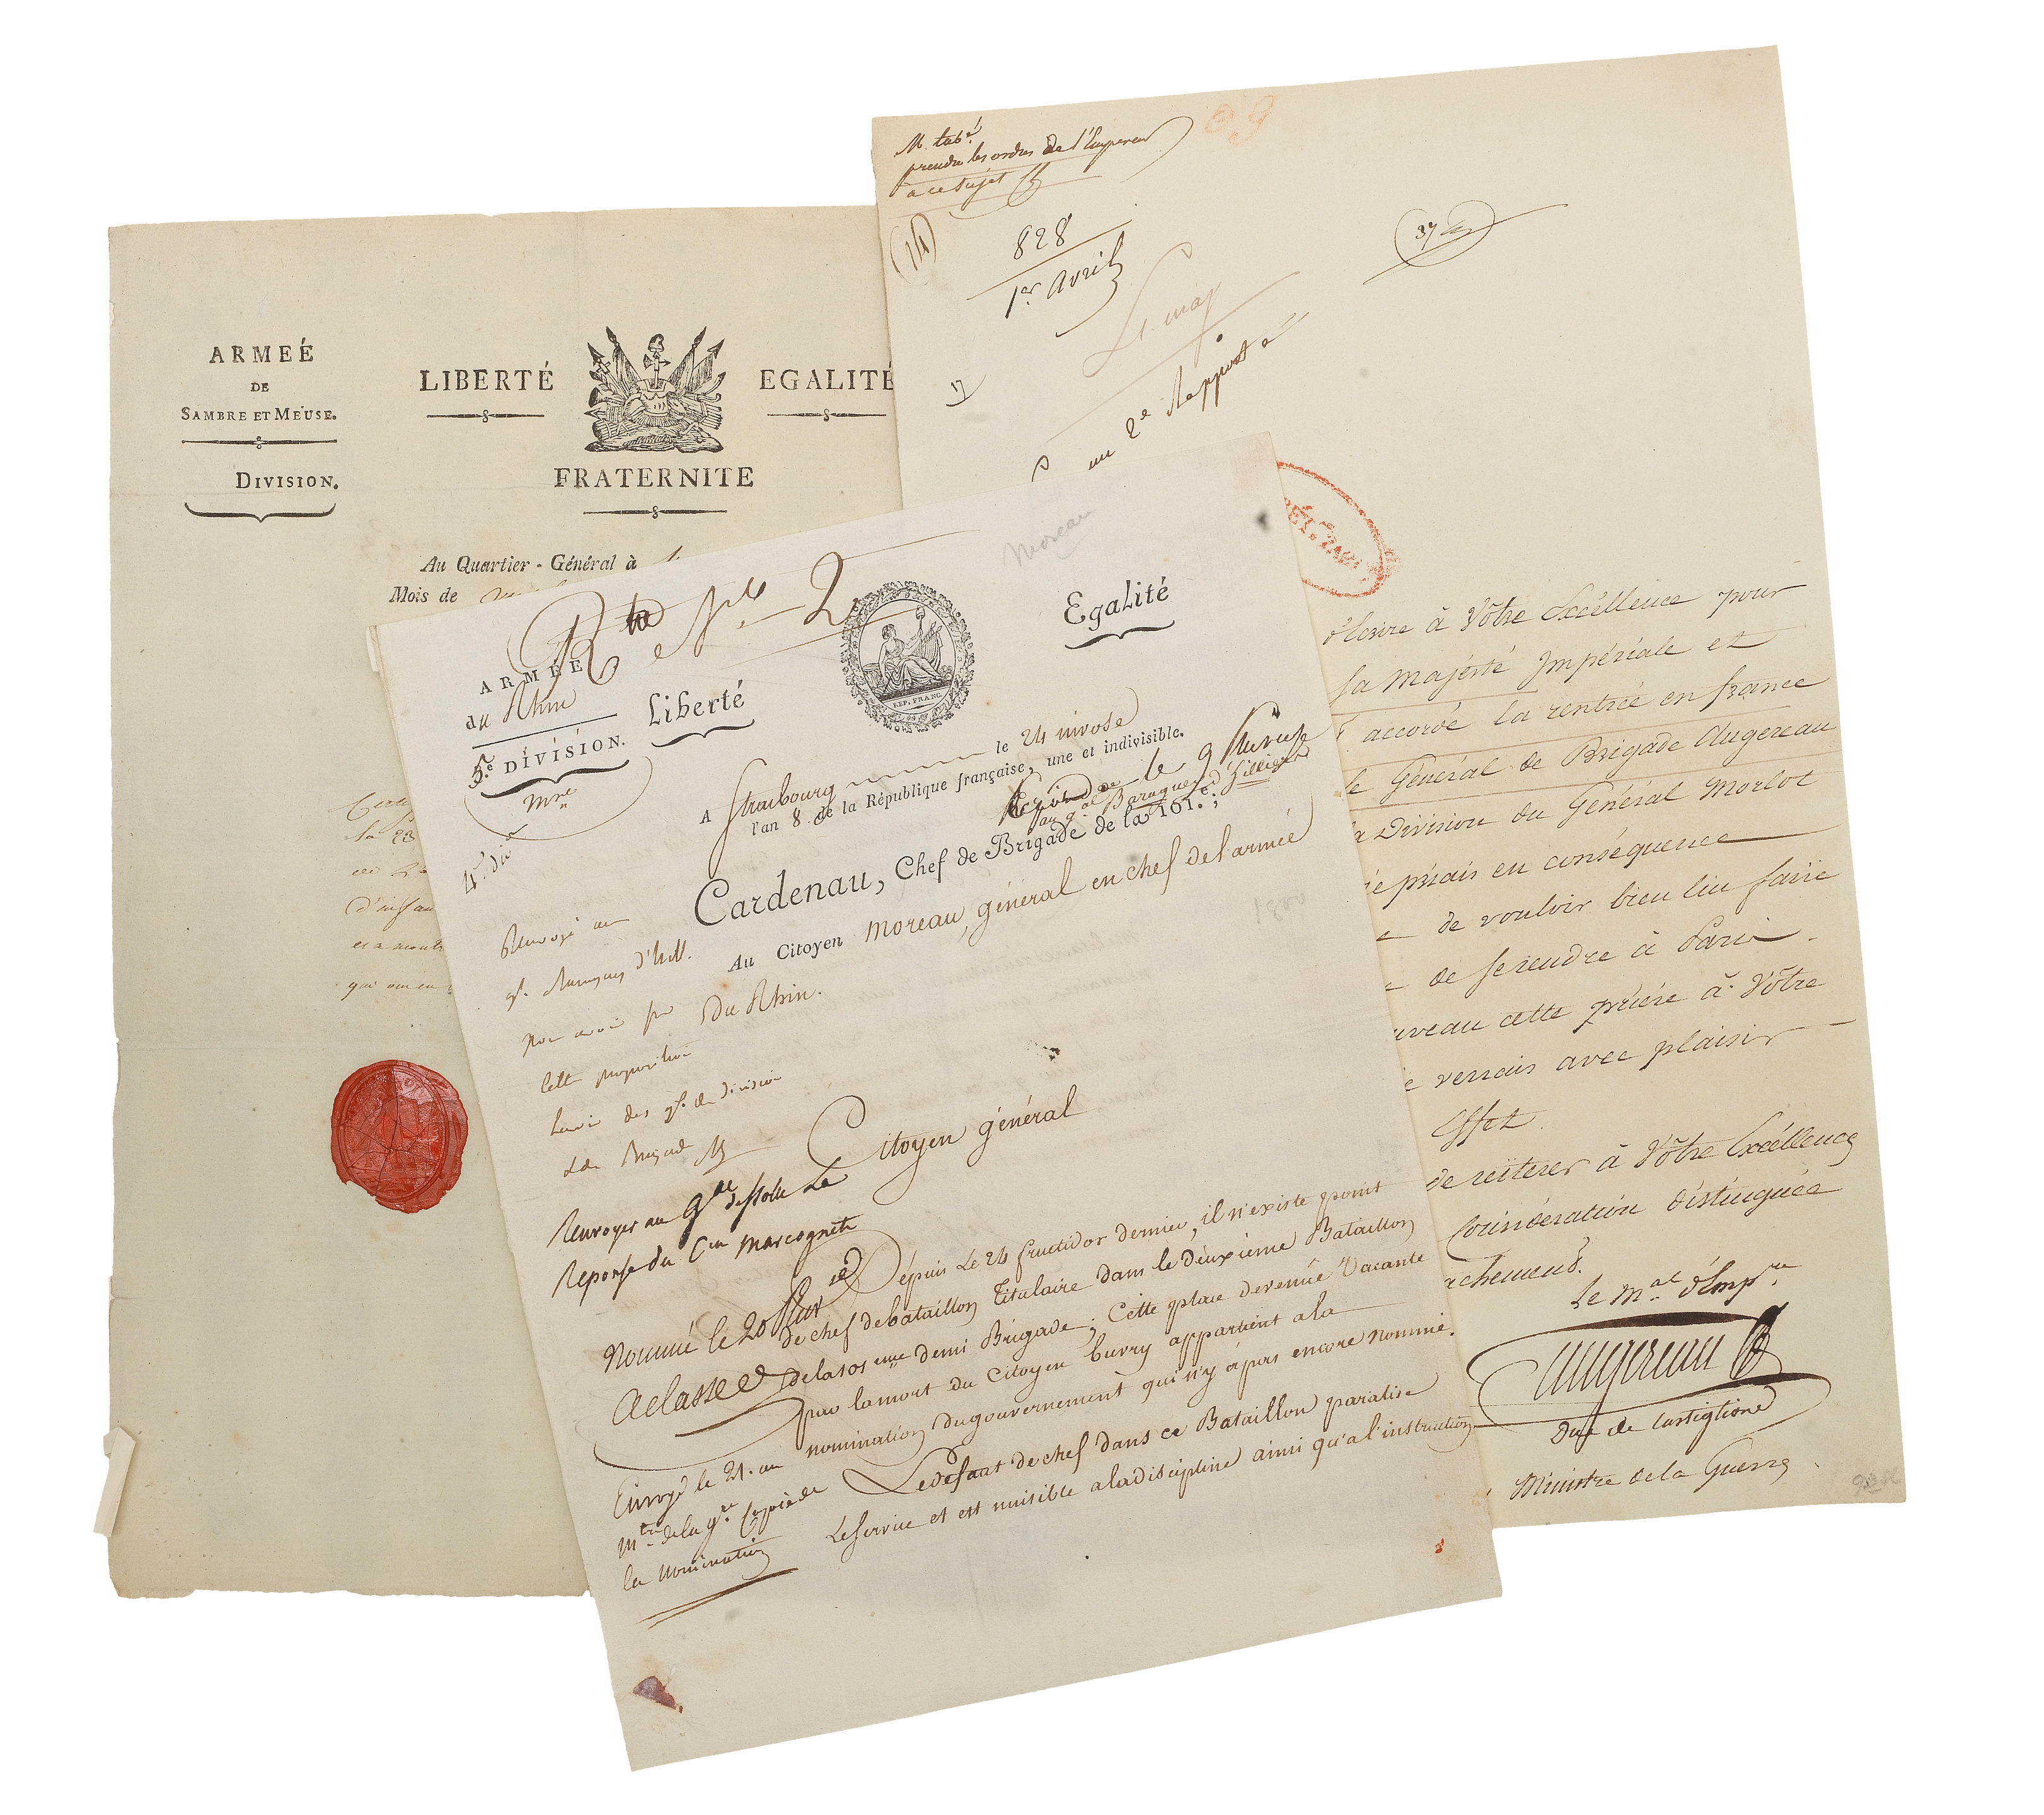 ARMEÉ
DE
SAMBRE ET MEUSE.
DIVISION.
LIBERTÉ
EGALITÉ
FRATERNITE
Au Quartier-Général à
Mois de
M. tabt
prendre les ordres de l'Empereur
a ce sujet
14
828
1er avril
17
un 2e Rapport
O9
d'Ecrire à Vôtre Excéllence pour
sa Majesté Impériale et
accordé la rentrée en france
le Général de Brigade Augereau
la Division du Général Morlot
je priais en conséquence
de vouloir bien lui faire
de se rendre à Paris.
uveau cette prière à Vôtre
verrais avec plaisir
Effet.
de réiterer à Vôtre Excéllence
Considération distinguée
achement.
Le Mal d'Empre
Augereau
Duc de Castiglione
Ministre de la Guerre
Rte No 2
Moreau
ARMÉE
du Rhin
5.e DIVISION.
Liberté
REP. FRANC.
Egalité
A Strasbourg le 24 nivose
l'an 8 de la République française, une et indivisible.
le 9 Pluviose
au gal Baraguey d'Hilliers
Cardenau, Chef de Brigade de la 101.e;
Au Citoyen Moreau, général en chef de l'armée
Du Rhin.
1800
Renvoyé au
gl. Baraguey d'hill.
pour avoir sur
cette proposition
l'avis des gl. de division
& de Brigade
Renvoyer au gal dessolle La
Reponse du Cen Marcognete
Citoyen général
Dépuis Le 24 fructidor dernier, il n'existe point
de chef debataillon Titulaire dans le deuxieme Bataillon
dela 101eme demi Brigade; Cette place devenue Vacante
par lamort du Citoyen Cuvry appartient ala
nomination Dugouvernement qui n'y àpas encore nommé.
Ledéfaut de chef dans ce Bataillon paralise
Leservice et est nuisible aladiscipline ainsi qu'a l'instruction
Nommé le 20 Pluvse
A classer
Envoyé le 21. au
Mtre dela gre Copie de
la nomination